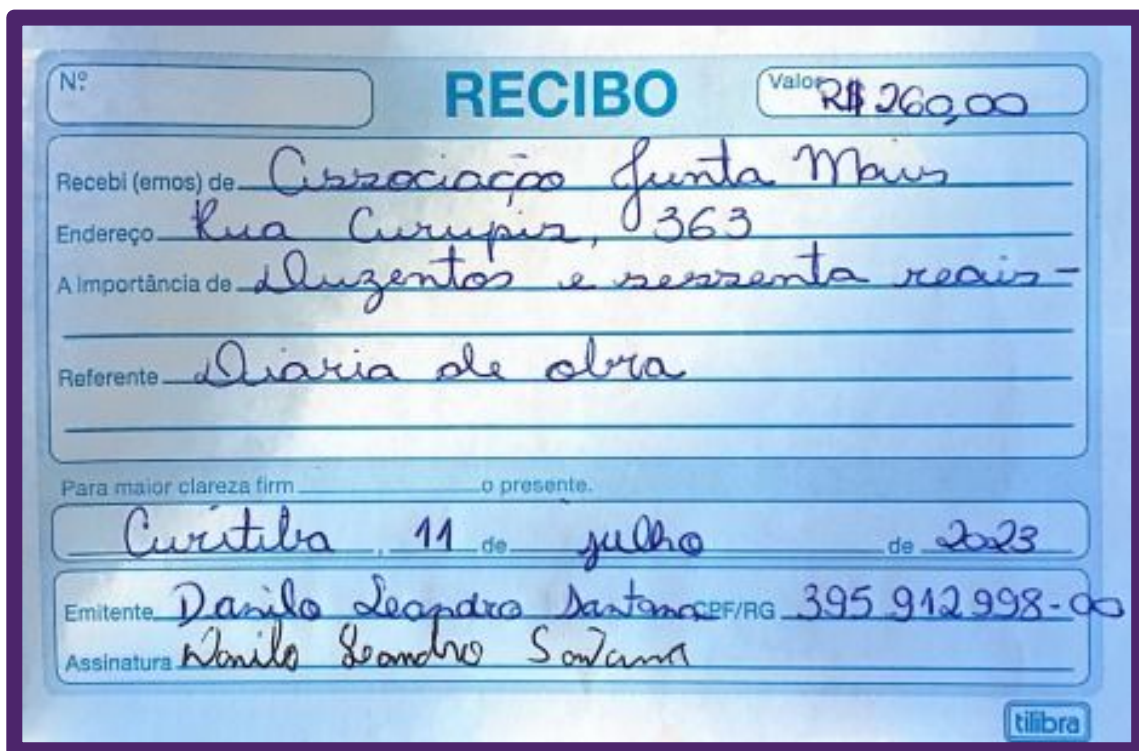 Nº
RECIBO
Valor R$ 260,00
Recebi (emos) de Associação Junta Mais
Endereço Rua Curupis, 363
A Importância de Duzentos e sessenta reais-
Referente Diaria de obra
Para maior clareza firm o presente.
Curitiba, 11 de julho de 2023
Emitente Danilo Leandro Santana CPF/RG 395 912 998-00
Assinatura Danilo Leandro Santana
tilibra